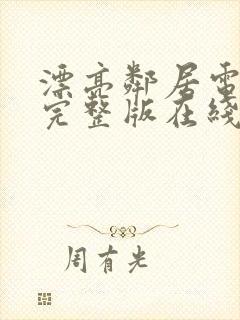 漂亮鄰居電
完整版在綫
周有光